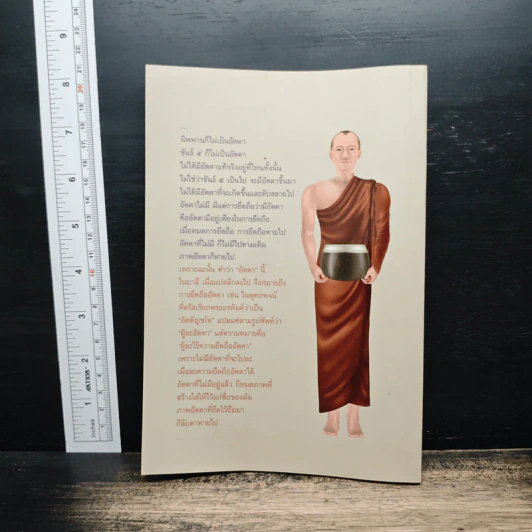 นิพพานก็ไม่เป็นอัตตา
ขันธ์ ๕ ก็ไม่เป็นอัตตา
ไม่ได้มีอัตตาแท้จริงอยู่ที่ไหนทั้งนั้น
ไม่ใช่ว่าขันธ์ ๕ เป็นไป จะมีอัตตาขึ้นมา
ไม่ได้มีอัตตาที่จะเกิดขึ้นและดับสลายไป
อัตตาไม่มี มีแต่การยึดถือว่ามีอัตตา
คืออัตตามีอยู่เพียงในการยึดถือ
เมื่อหมดการยึดถือ การยึดถือหายไป
อัตตาที่ไม่มี ก็ไม่มีไปตามเดิม
ภาพอัตตาก็หายไป
เพราะฉะนั้น คำว่า "อัตตา" นี้
ในบาลี เมื่อแปลลึกลงไป จึงหมายถึง
การยึดถืออัตตา เช่น ในพุทธพจน์
ที่ตรัสเรียกพระอรหันต์ว่าเป็น
"อัตตัญชโห" แปลแค่ตามรูปศัพท์ว่า
"ผู้ละอัตตา" แต่ความหมายคือ
"ผู้ละไร้ความยึดถืออัตตา"
เพราะไม่มีอัตตาที่จะไปละ
เมื่อละความยึดถืออัตตาได้
อัตตาที่ไม่มีอยู่แล้ว ก็หมดภาพที่
สร้างใส่ให้ไว้แก่ชื่อของมัน
ภาพอัตตาที่ยึดไว้ถือมา
ก็ลับตาหายไป
inches
1
2
3
4
5
6
7
8
9
10
20